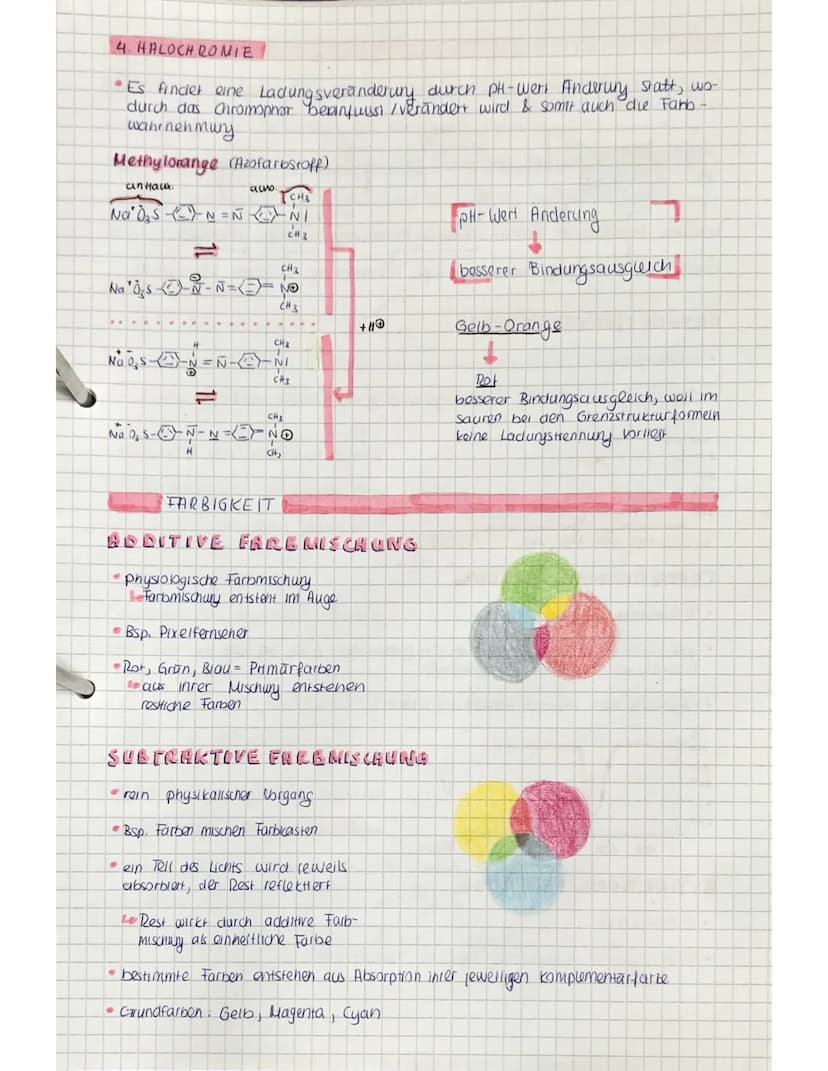 4. HALOCHROMIE
• Es findet eine Ladungsveränderung durch pH-Wert Änderung statt, wo-
durch das Chromophor beeinflusst / verändert wird & somit auch die Farb-
wahrnehmung
Methylorange (Azofarbstoff)
antiaux. auxo.
CH3
Na⁺ O₃S - - N = N - - NI
CH3
⇌
CH3
Na⁺ O₃S - - N - N = = N⊕
CH3
+H⊕
H CH3
Na⁺ O₃S - - N = N - - NI
⊕ CH3
⇌
CH3
Na⁺ O₃S - - N - N = = N⊕
H CH3
pH-Wert Änderung
↓
besserer Bindungsausgleich
Gelb-Orange
↓
Rot
besserer Bindungsausgleich, weil im
sauren bei den Grenzstrukturformeln
keine Ladungstrennung vorliegt
FARBIGKEIT
ADDITIVE FARBMISCHUNG
• physiologische Farbmischung
↳ Farbmischung entsteht im Auge
• Bsp. Pixelfernseher
• Rot, Grün, Blau = Primärfarben
↳ aus ihrer Mischung entstehen
restliche Farben
SUBTRAKTIVE FARBMISCHUNG
• rein physikalischer Vorgang
• Bsp. Farben mischen Farbkasten
• ein Teil des Lichts wird jeweils
absorbiert, der Rest reflektiert
↳ Rest wirkt durch additive Farb-
mischung als einheitliche Farbe
• bestimmte Farben entstehen aus Absorption ihrer jeweiligen Komplementärfarbe
• Grundfarben: Gelb, Magenta, Cyan